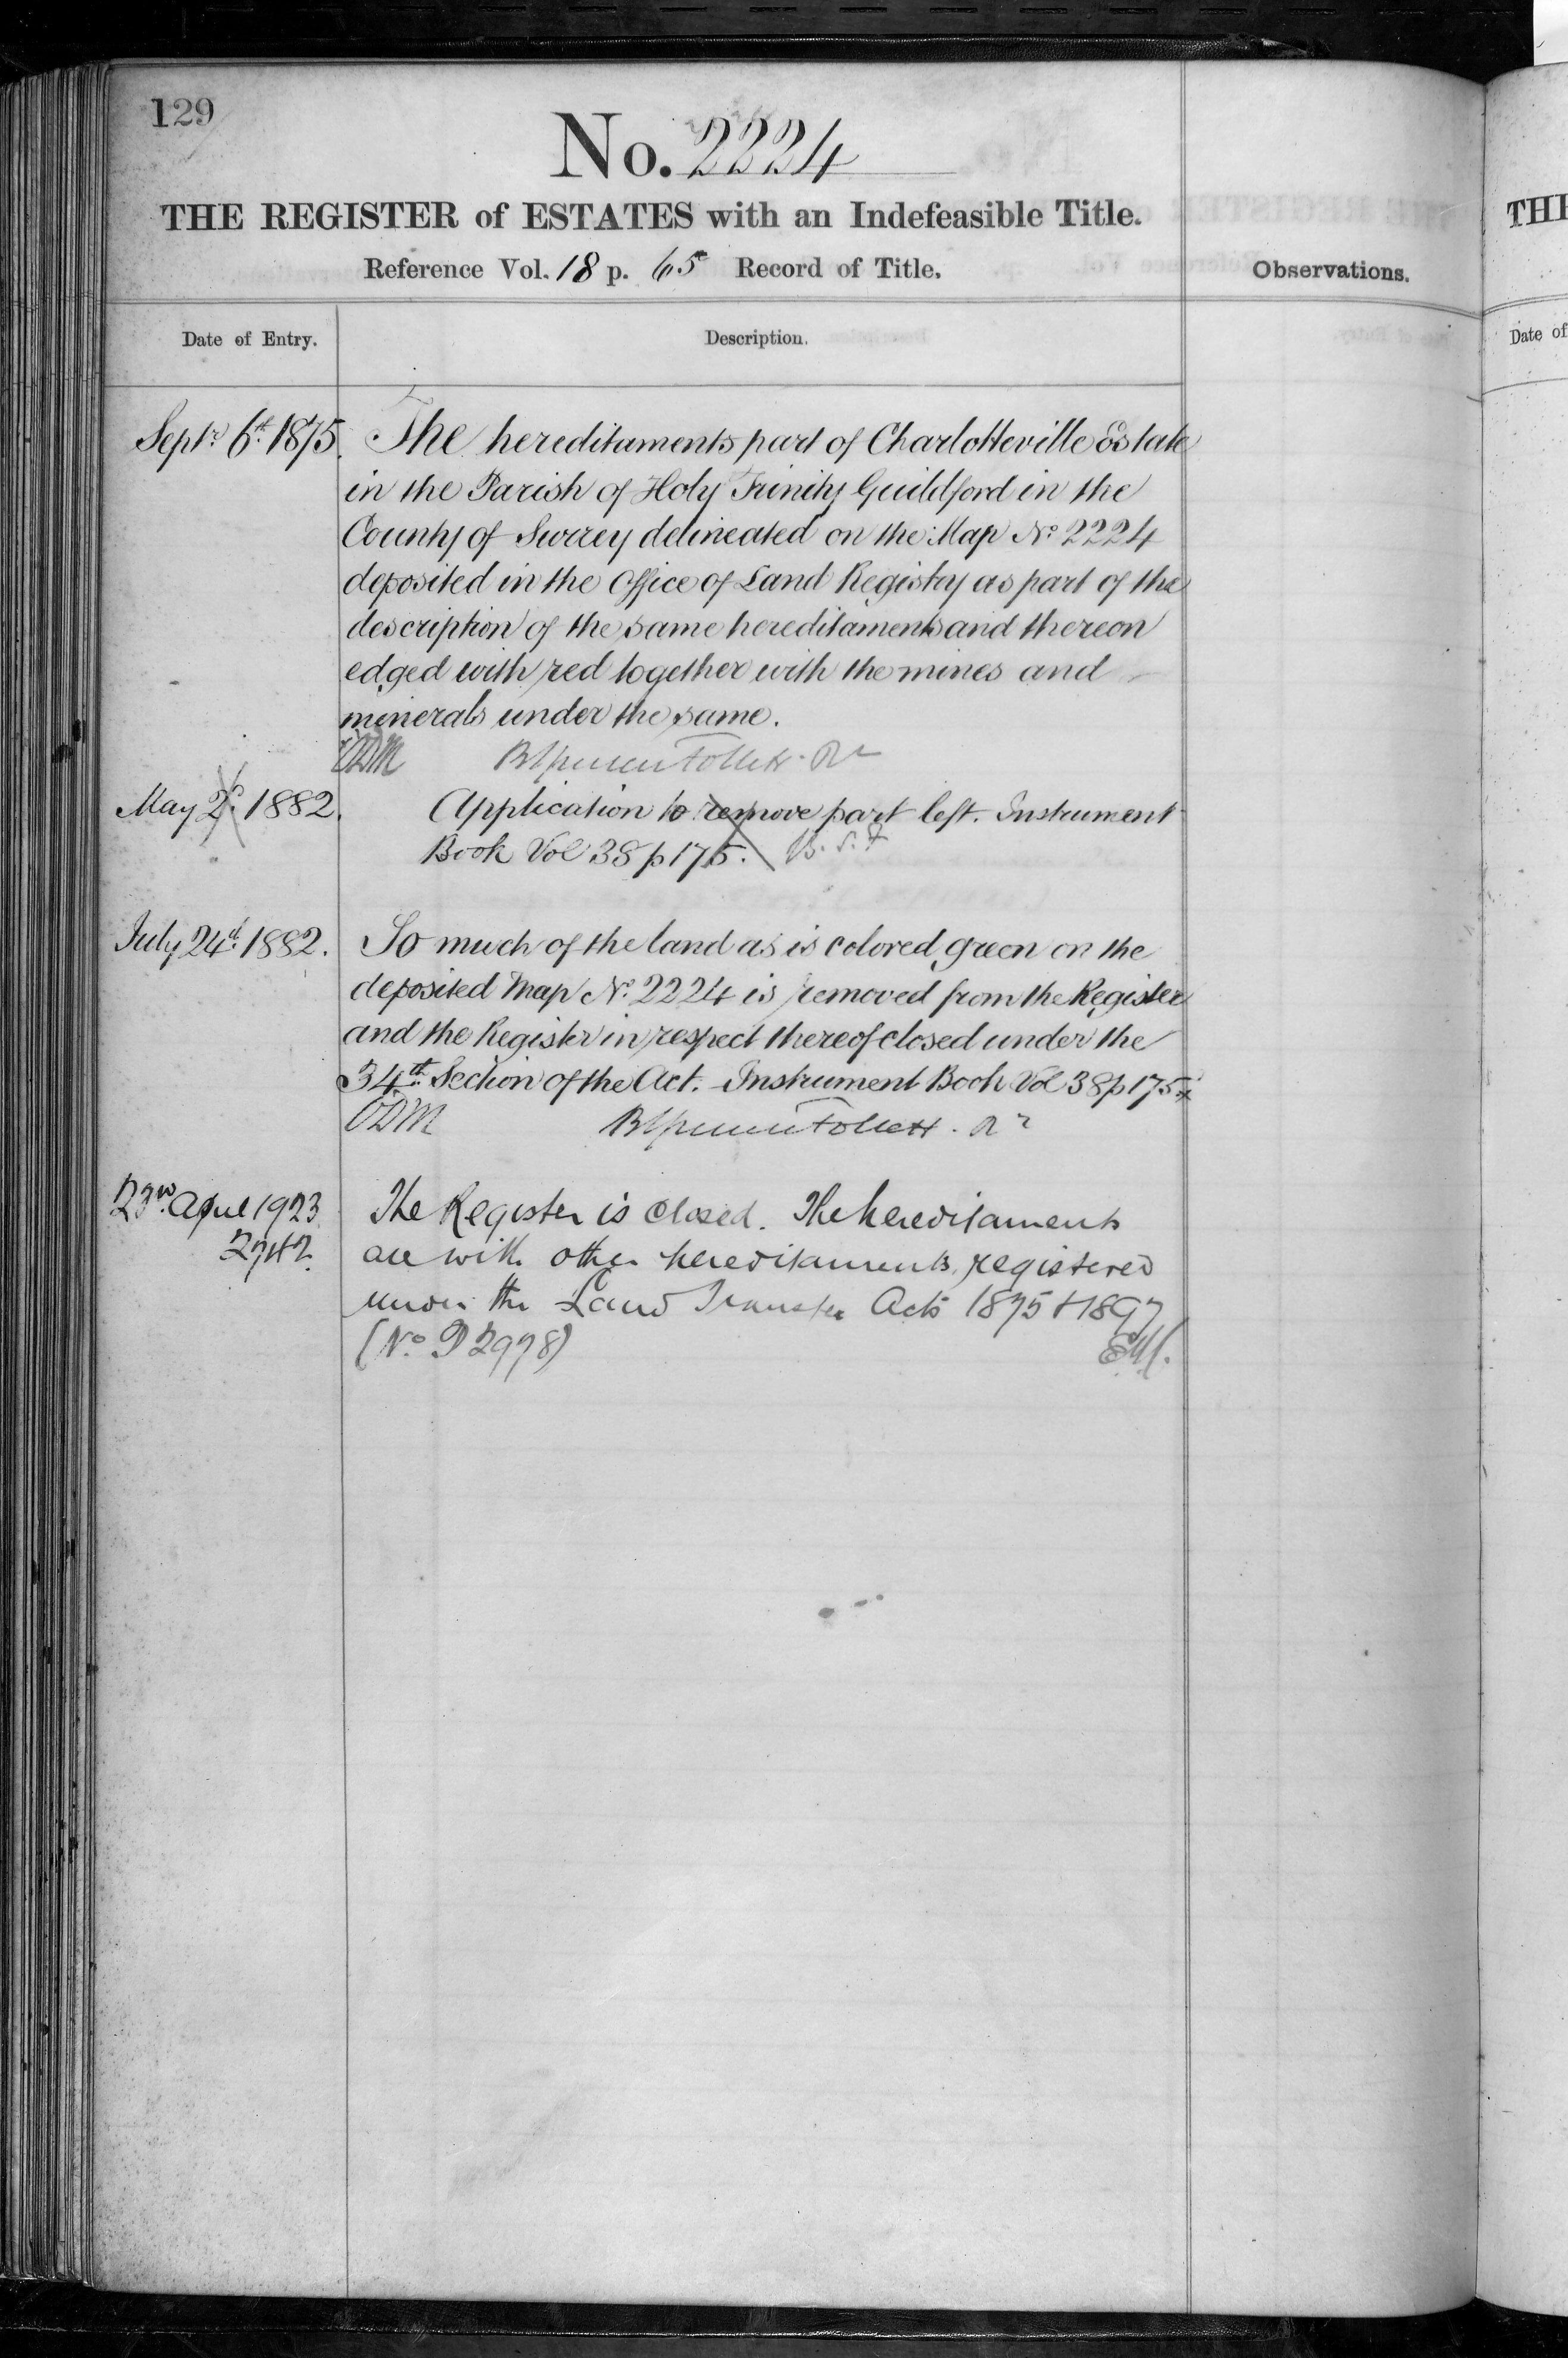 129
No. 2224
THE REGISTER of ESTATES with an Indefeasible Title.
Reference Vol. 18 p. 65 Record of Title.
Observations.
Date of Entry.
Description.
Septr. 6th. 1875. The hereditaments part of Charlotteville Estate
in the Parish of Holy Trinity Guildford in the
County of Surrey delineated on the Map No. 2224
deposited in the Office of Land Registry as part of the
description of the same hereditaments and thereon
edged with red together with the mines and
minerals under the same.
Follett. Rr
May 2d. 1882. Application to remove part left. Instrument
Book Vol 38 p 175. B. S. F
July 24th. 1882. So much of the land as is colored green on the
deposited Map No. 2224 is removed from the Register
and the Register in respect thereof closed under the
34th. Section of the Act. Instrument Book Vol 38 p 175
Follett. Rr
23rd. April 1923 The Register is closed. The hereditaments
2742 are with other hereditaments registered
under the Land Transfer Acts 1875 & 1897
(No. P 2978)
THE
Date of